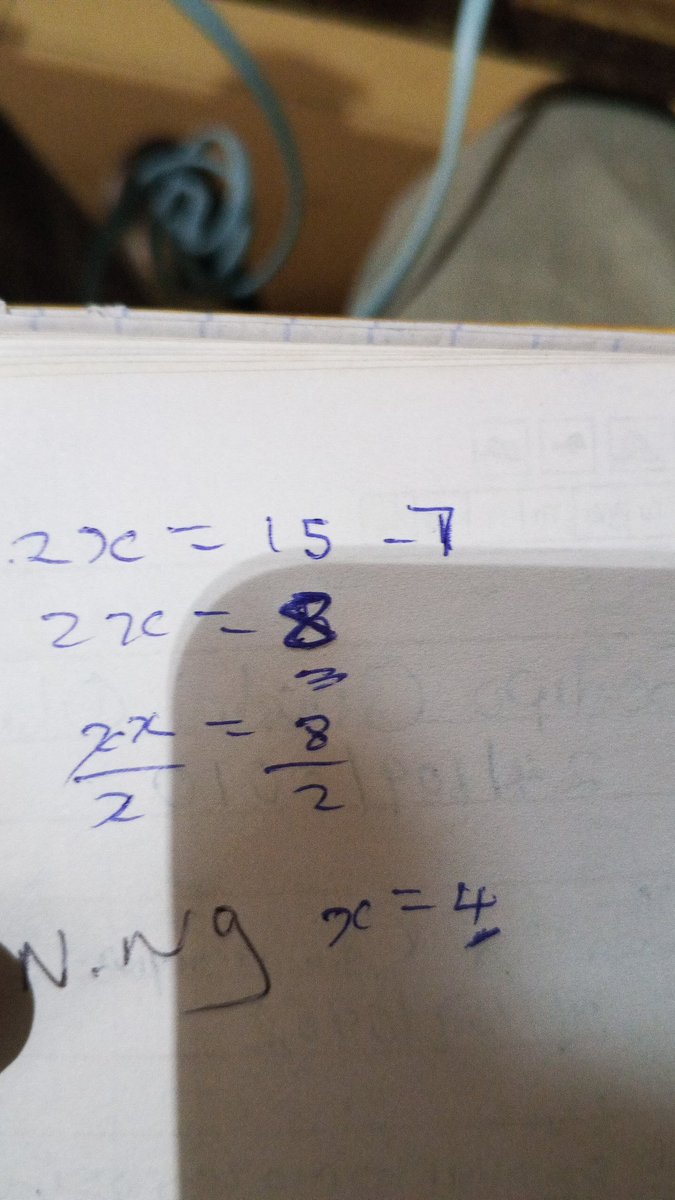 2x = 15 - 7
2x = 8
2x = 8
2 2
x = 4
N.Ng